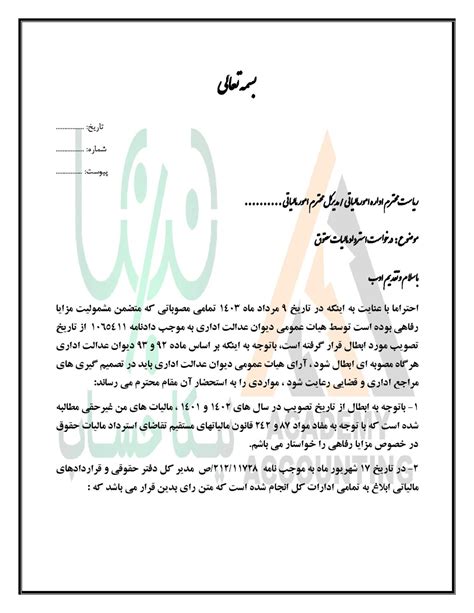 بسمه تعالی
تاریخ: ................
شماره: ................
پیوست: ................
ریاست محترم اداره امور مالیاتی / مدیرکل محترم امور مالیاتی ..........
موضوع: درخواست استرداد مالیات حقوق
با سلام و تقدیم ادب
احتراما با عنایت به اینکه در تاریخ ۹ مرداد ماه ۱۴۰۳ تمامی مصوباتی که متضمن مشمولیت مزایا
رفاهی بوده است توسط هیات عمومی دیوان عدالت اداری به موجب دادنامه ۱۰۶۵۴۱۱ از تاریخ
تصویب مورد ابطال قرار گرفته است، باتوجه به اینکه بر اساس ماده ۹۲ و ۹۳ دیوان عدالت اداری
هرگاه مصوبه ای ابطال شود ، آرای هیات عمومی دیوان عدالت اداری باید در تصمیم گیری های
مراجع اداری و قضایی رعایت شود ، مواردی را به استحضار آن مقام محترم می رساند:
۱- باتوجه به ابطال از تاریخ تصویب در سال های ۱۴۰۲ و ۱۴۰۱ ، مالیات های من غیرحقی مطالبه
شده است که با توجه به مفاد مواد ۸۷ و ۲۴۲ قانون مالیاتهای مستقیم تقاضای استرداد مالیات حقوق
در خصوص مزایا رفاهی را خواستار می باشم.
۲- در تاریخ ۱۷ شهریور ماه به موجب نامه ۲۱۲/۱۱۷۲۸/ص مدیر کل دفتر حقوقی و قراردادهای
مالیاتی ابلاغ به تمامی ادارات کل انجام شده است که متن رای بدین قرار می باشد که :
ACADEMY
ACCOUNTING